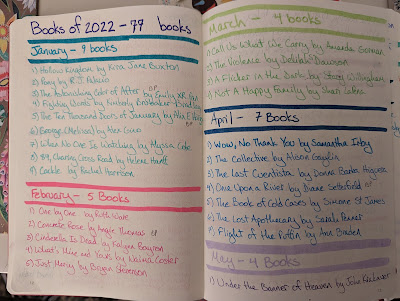 Books of 2022 - 77 books
January - 9 books
1) Hollow Kingdom by Kira Jane Buxton
2) Pony by R.J. Palacio
3) The Astonishing Color of After by Emily XR Pan
4) Fighting Words by Kimberly Brubaker Bradley
5) The Ten Thousand Doors of January by Alix E.
6) George (Melissa) by Alex Gino
7) When No One Is Watching by Alyssa Cole
8) 84, Charing Cross Road by Helene Hanff
9) Cackle by Rachel Harrison
February - 5 Books
1) One by One by Ruth Ware
2) Concrete Rose by Angie Thomas
3) Cinderella Is Dead by Kalynn Bayron
4) What's Mine and Yours by Naima Coster
5) Just Mercy by Bryan Stevenson
March - 4 books
1) Call Us What We Carry by Amanda Gorman
2) The Violence by Delilah Dawson
3) A Flicker in the Dark by Stacy Willingham
4) Not A Happy Family by Shari Lapena
April - 7 Books
1) Wow, No Thank You by Samantha Irby
2) The Collective by Alison Gaylin
3) The Last Cuentista by Donna Barba Higuera
4) Once Upon a River by Diane Setterfield
5) The Book of Cold Cases by Simone St James
6) The Lost Apothecary by Sarah Penner
7) Flight of the Puffin by Ann Braden
May - 4 Books
1) Under the Banner of Heaven by John Krakauer